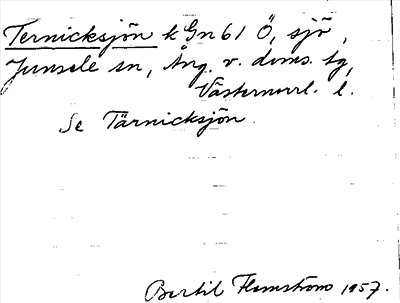 Ternicksjön k Gn 61 Ö, sjö,
Junsele sn, Ång. v. doms. tg,
Västernorrl. l.
Se Tärnicksjön.
Bertil Flemström 1957.